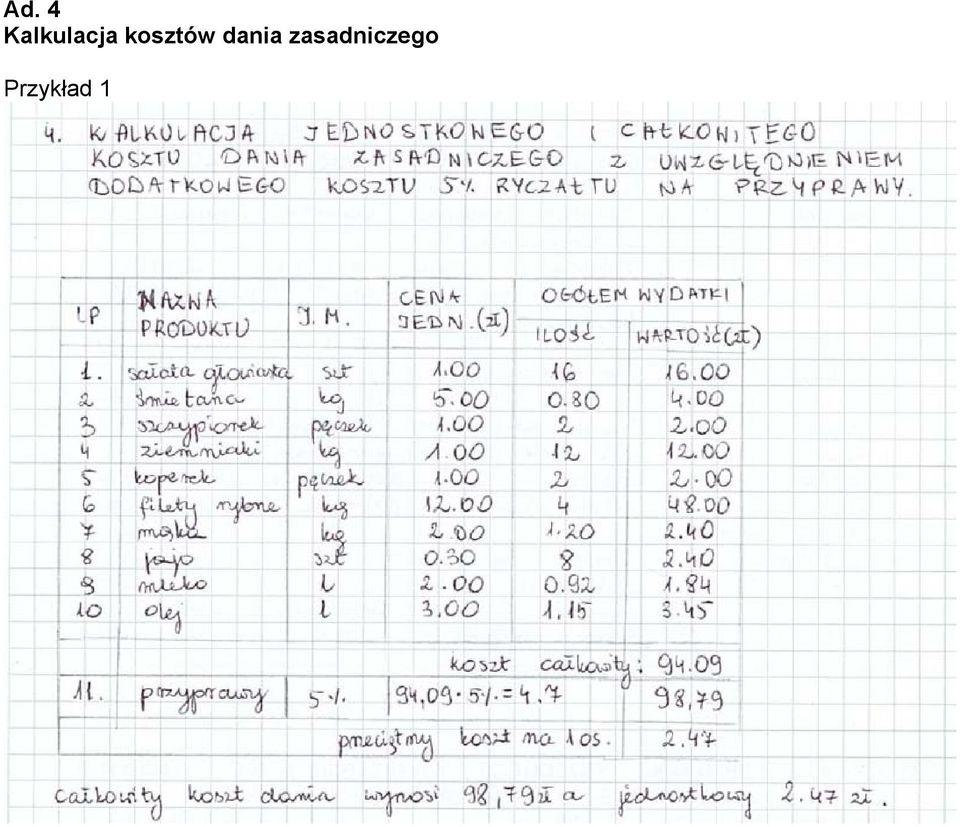 Ad. 4
Kalkulacja kosztów dania zasadniczego
Przykład 1
4. KALKULACJA JEDNOSTKOWEGO I CAŁKOWITEGO
KOSZTU DANIA ZASADNICZEGO Z UWZGLĘDNIENIEM
DODATKOWEGO KOSZTU 5% RYCZAŁTU NA PRZYPRAWY.
LP NAZWA PRODUKTU J.M. CENA JEDN.(zł) OGÓŁEM WYDATKI
ILOŚĆ WARTOŚĆ(zł)
1. sałata głowiasta szt 1.00 16 16.00
2 śmietana kg 5.00 0.80 4.00
3 szczypiorek pęczek 1.00 2 2.00
4 ziemniaki kg 1.00 12 12.00
5 koperek pęczek 1.00 2 2.00
6 filety rybne kg 12.00 4 48.00
7 mąka kg 2.00 1.20 2.40
8 jajo szt 0.30 8 2.40
9 mleko l 2.00 0.92 1.84
10 olej l 3.00 1.15 3.45
koszt całkowity: 94.09
11. przyprawy 5% 94,09·5%=4.7 98,79
przeciętny koszt na 1 os. 2.47
całkowity koszt dania wynosi 98,79zł a jednostkowy 2.47 zł.